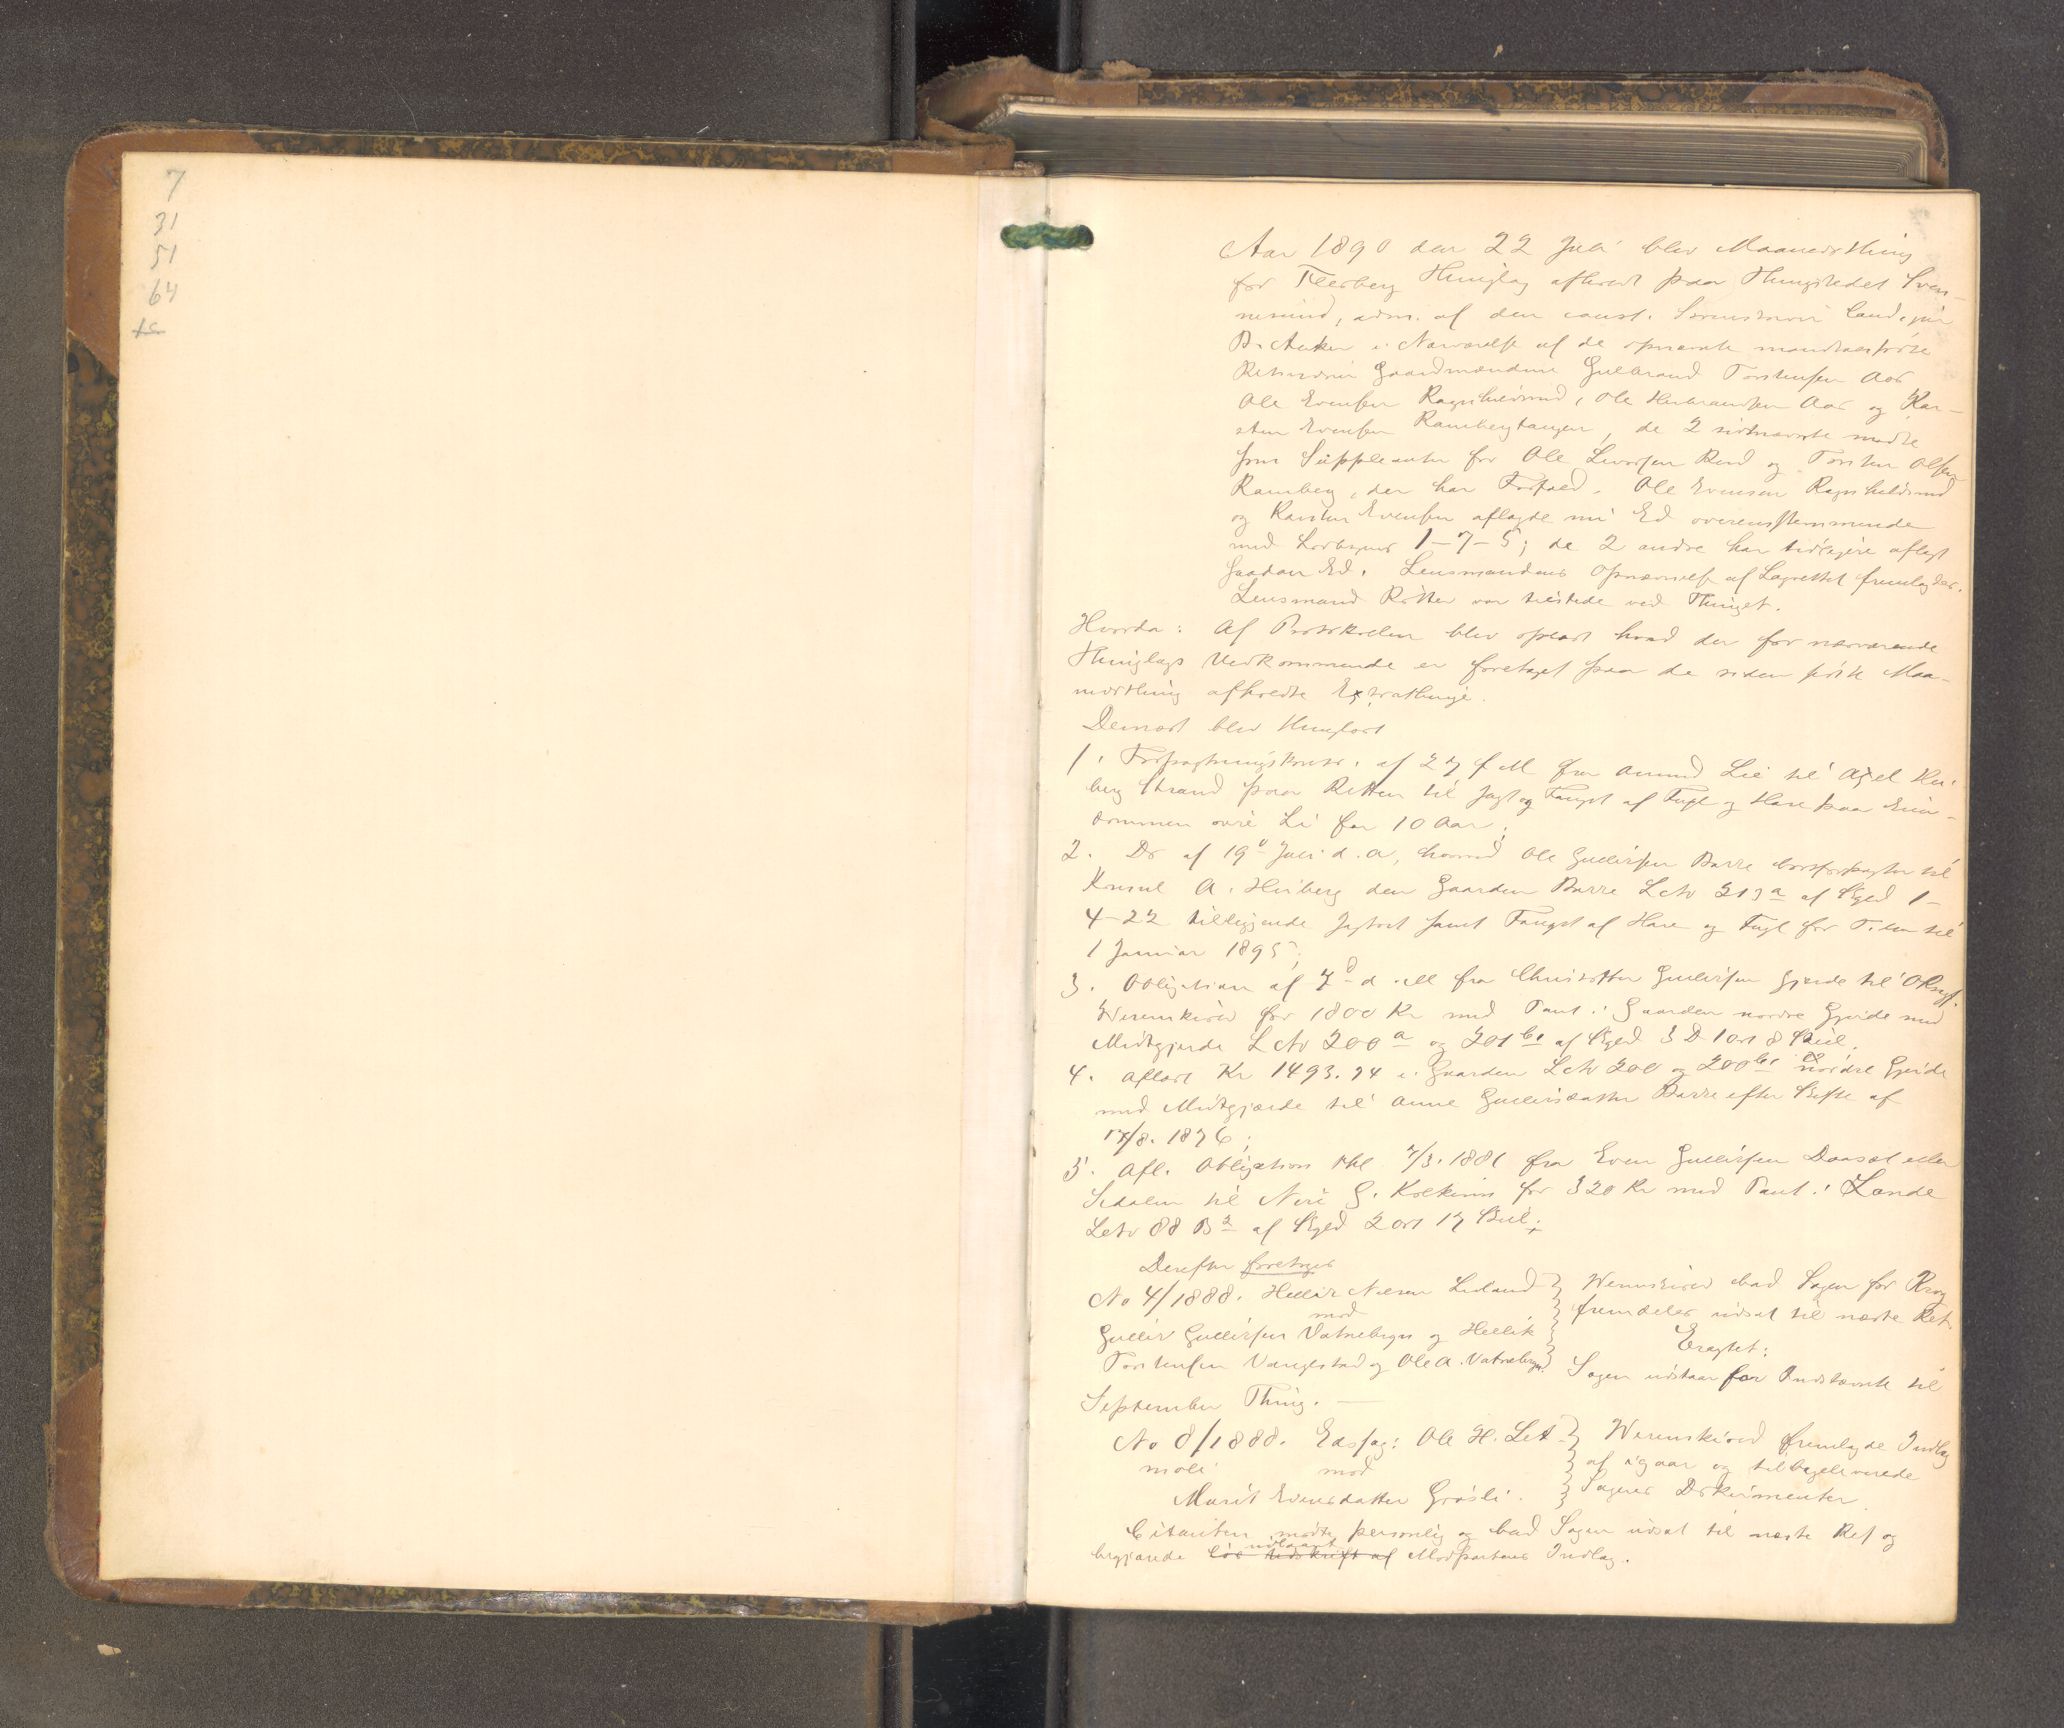 7
31
51
64
Aar 1890 den 22 Juli blev Maanedsthing
for Flesberg Thinglag afholdt paa Thingstedet Sven-
nesund, adm. af den const. Sorenskriver Cand. jur
B. Anker i Nærværelse af de opnævnte mandtalsførte
Retsvidner Gaardmændene Gulbrand Torstensen Aas
Ole Evensen Ragnhildrud, Ole Herbrandsen Aas og Kar-
sten Evensen Rambergtangen, de 2 sidstnævnte mødte
som Suppleanter for Ole Levorsen Rud og Torsten Olsen
Ramberg, der har Forfald. Ole Evensen Ragnhildrud
og Karsten Evensen aflagde nu Ed overensstemmende
med Lovbogens 1-7-5; de 2 andre har tidligere aflagt
saadan Ed. Lensmandens Opnævnelse af Lagrettet fremlagdes.
Lensmand Ritter var tilstede ved Thinget.
Hvorda: Af Protokollen blev oplæst hvad der for nærværende
Thinglags Vedkommende er foretaget paa de siden sidste Maa-
nedsthing afholdte Extrathinge.
Dernæst blev thinglæst
1. Forpagtningskontr. af 27 f M fra Amund Lie til Axel Hei-
berg Strand paa Retten til Jagt og Fangst af Fugl og Hare paa Eien-
dommen øvre Li for 10 Aar;
2. Do af 19d Juli d. A, hvorved Ole Gulliksen Barre bortforpagter til
Konsul A. Heiberg den Gaarden Barre L No 213a af Skyld 1-
4-22 tilliggende Jagtret samt Fangst af Hare og Fugl for Tiden til
1 Januar 1895;
3. Obligation af 7d d. M fra Christoffer Gulliksen Gjerde til O Ragsf.
Werenskiold for 1800 Kr med Pant i Gaarden nordre Gjerde med
Midtgjerde L No 200a og 201b1 af Skyld 3 D 1 ort 8 Skil.
4. Aflæst Kr 1493.94 i Gaarden L No 200 og 200b1 nordre Gjerde
med Midtgjærde til Anne Gulliksdatter Barre efter Skifte af
17/8. 1876;
5. Afl. Obligation thl 7/3. 1881 fra Even Gulliksen Daaset eller
Sedalen til Niri G. Kolkinn for 320 Kr med Pant i Lande
L No 88 B2 af Skyld 2 ort 17 Skil;
Derefter foretoges
No 4/1888. Hellik Nilsen Lidand
mod
Gullik Gulliksen Vatnebryn og Hellik
Torstensen Vangestad og Ole A. Vatnebryn.
Werenskiold bad Sagen for Krog
fremdeles udsat til næste Ret.
Eragtet:
Sagen udstaar for Indstævnte til
September Thing. —
No 8/1888. Edssag: Ole H. Let-
moli mod
Marit Evensdatter Grøsli.
Werenskiold fremlagde Indlæg
af igaar og tilbageleverede
Sagens Dokumenter.
Citanten mødte personlig og bad Sagen udsat til næste Ret og
udlaant
begjærede løs Udskrift af Modpartens Indlæg.